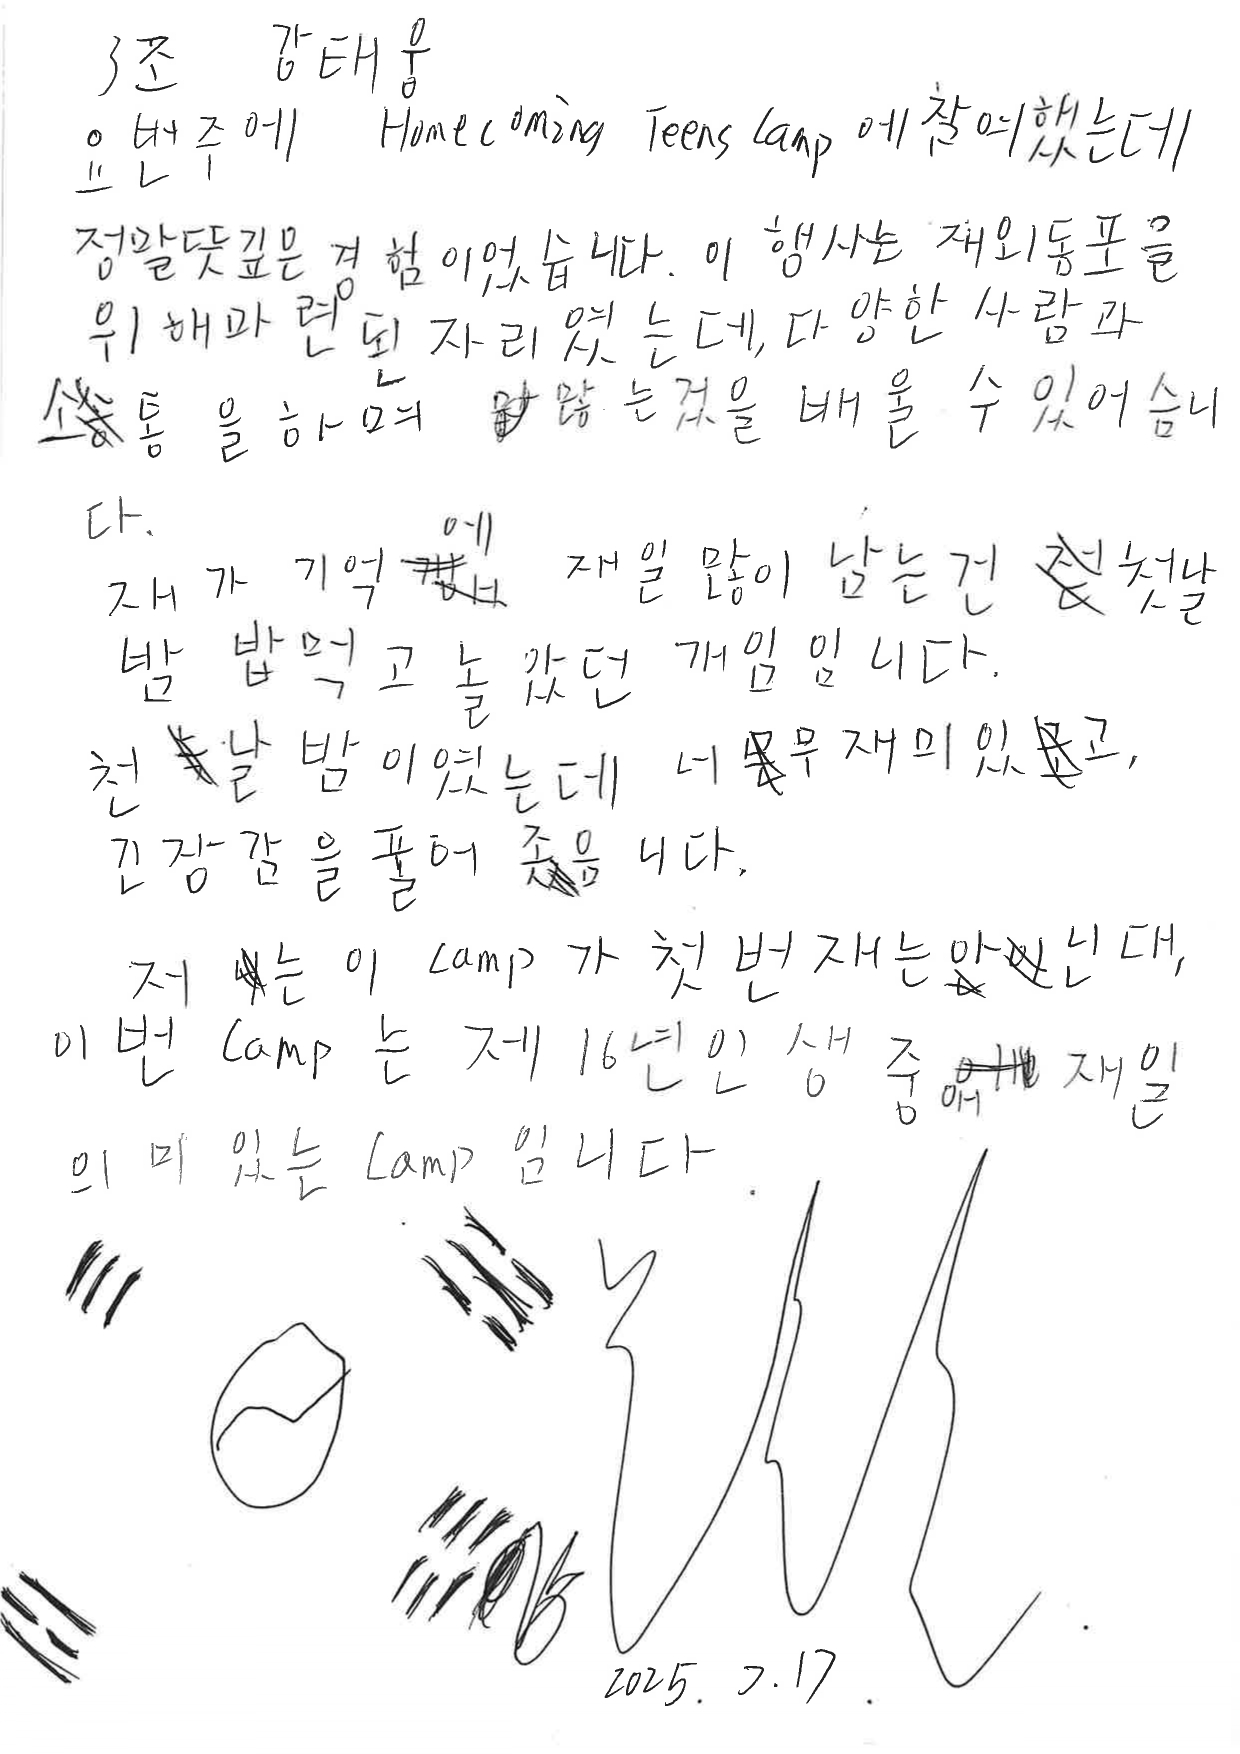 3조 강태웅
요번주에 Homecoming Teens Camp에 참여했는데
정말뜻깊은 경험이었습니다. 이 행사는 재외동포을
위해마련된 자리였는데, 다양한 사람과
소통을하며 많는것을 배울 수 있어습니
다.
재가 기억에 재일 많이 남는건 첫날
밤 밥먹고 놀았던 개임입니다.
천날밤이였는데 너무재미있고,
긴장감을 풀어 좃음니다.
저는 이 Camp가 첫번재는아닌대,
이번 Camp는 제 16년인생 중애 재일
의미 있는 Camp입니다.
2025. 7. 17.